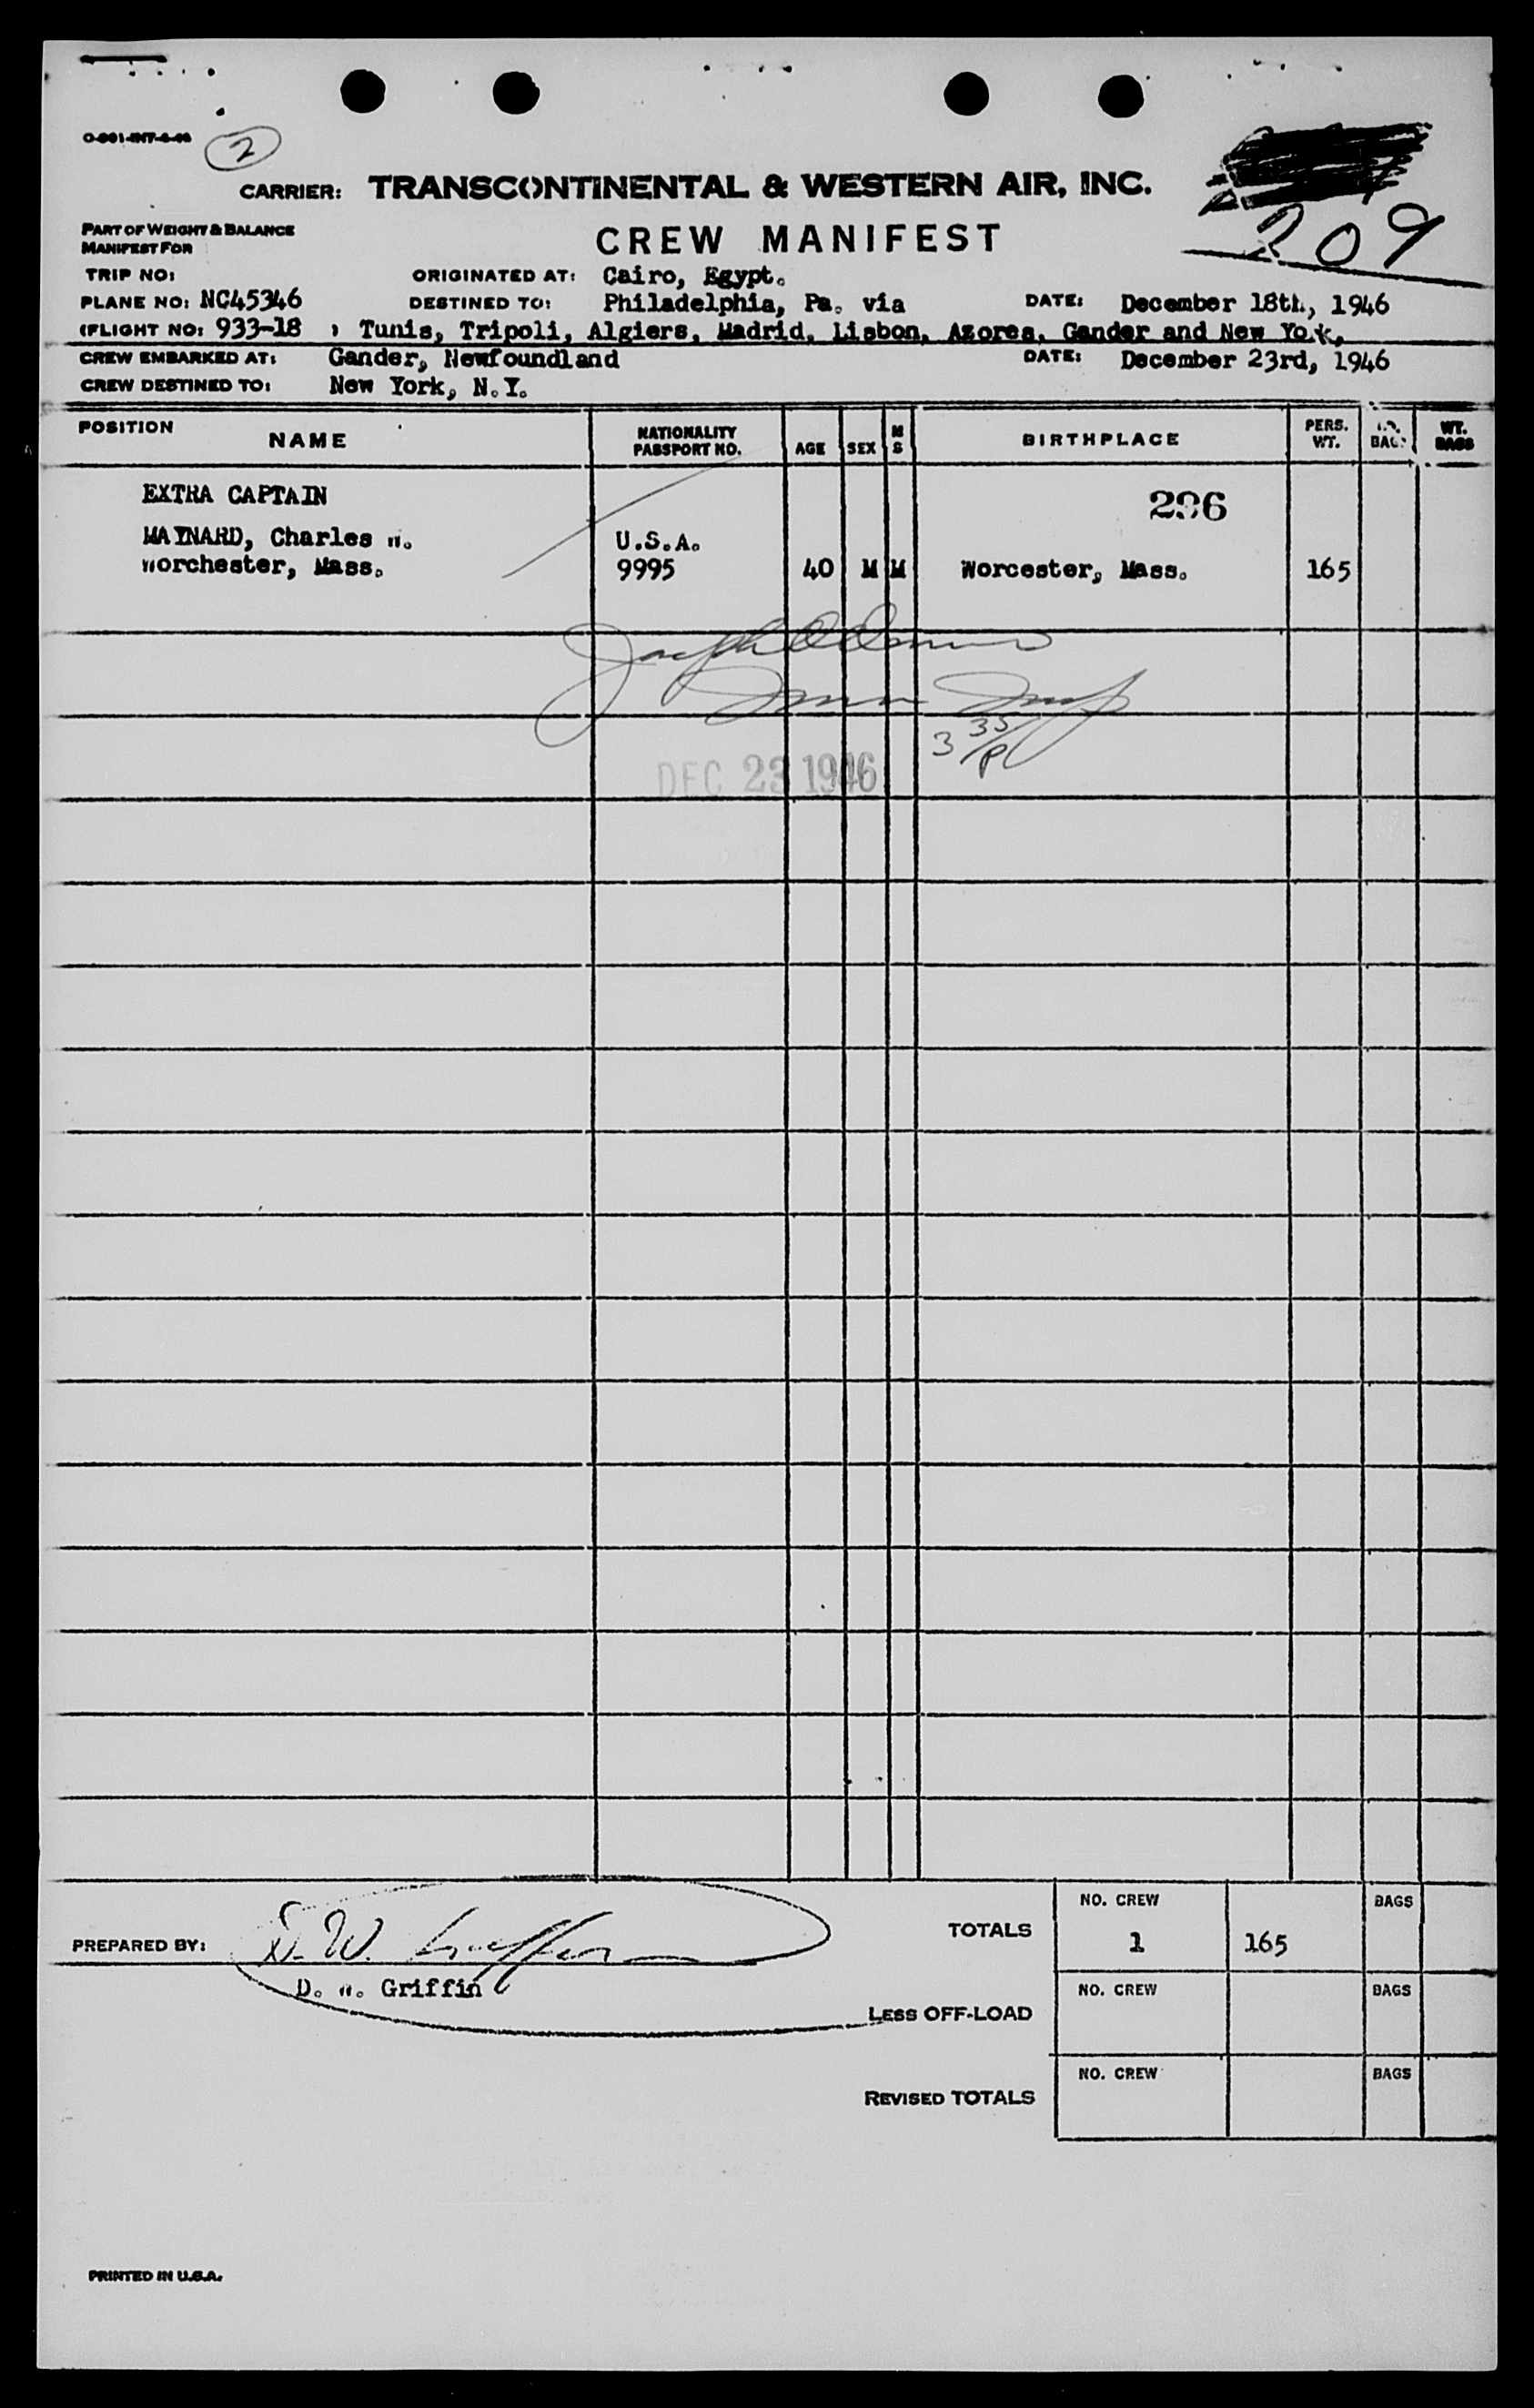 2
CARRIER: TRANSCONTINENTAL & WESTERN AIR, INC.
209
PART OF WEIGHT & BALANCE
MANIFEST FOR
CREW MANIFEST
TRIP NO: ORIGINATED AT: Cairo, Egypt.
PLANE NO: NC45346 DESTINED TO: Philadelphia, Pa. via DATE: December 18th, 1946
(FLIGHT NO: 933-18 ) Tunis, Tripoli, Algiers, Madrid, Lisbon, Azores, Gander and New York.
CREW EMBARKED AT: Gander, Newfoundland DATE: December 23rd, 1946
CREW DESTINED TO: New York, N.Y.
POSITION NAME NATIONALITY PASSPORT NO. AGE SEX M S BIRTHPLACE PERS. WT. BAGS WT. BAGS
EXTRA CAPTAIN 296
MAYNARD, Charles W. U.S.A.
Worchester, Mass. 9995 40 M M Worcester, Mass. 165
Joseph
3 35/P
DEC 23 1946
PREPARED BY: D. W. Griffin TOTALS NO. CREW 1 165 BAGS
D. W. Griffin
LESS OFF-LOAD NO. CREW BAGS
REVISED TOTALS NO. CREW BAGS
PRINTED IN U.S.A.